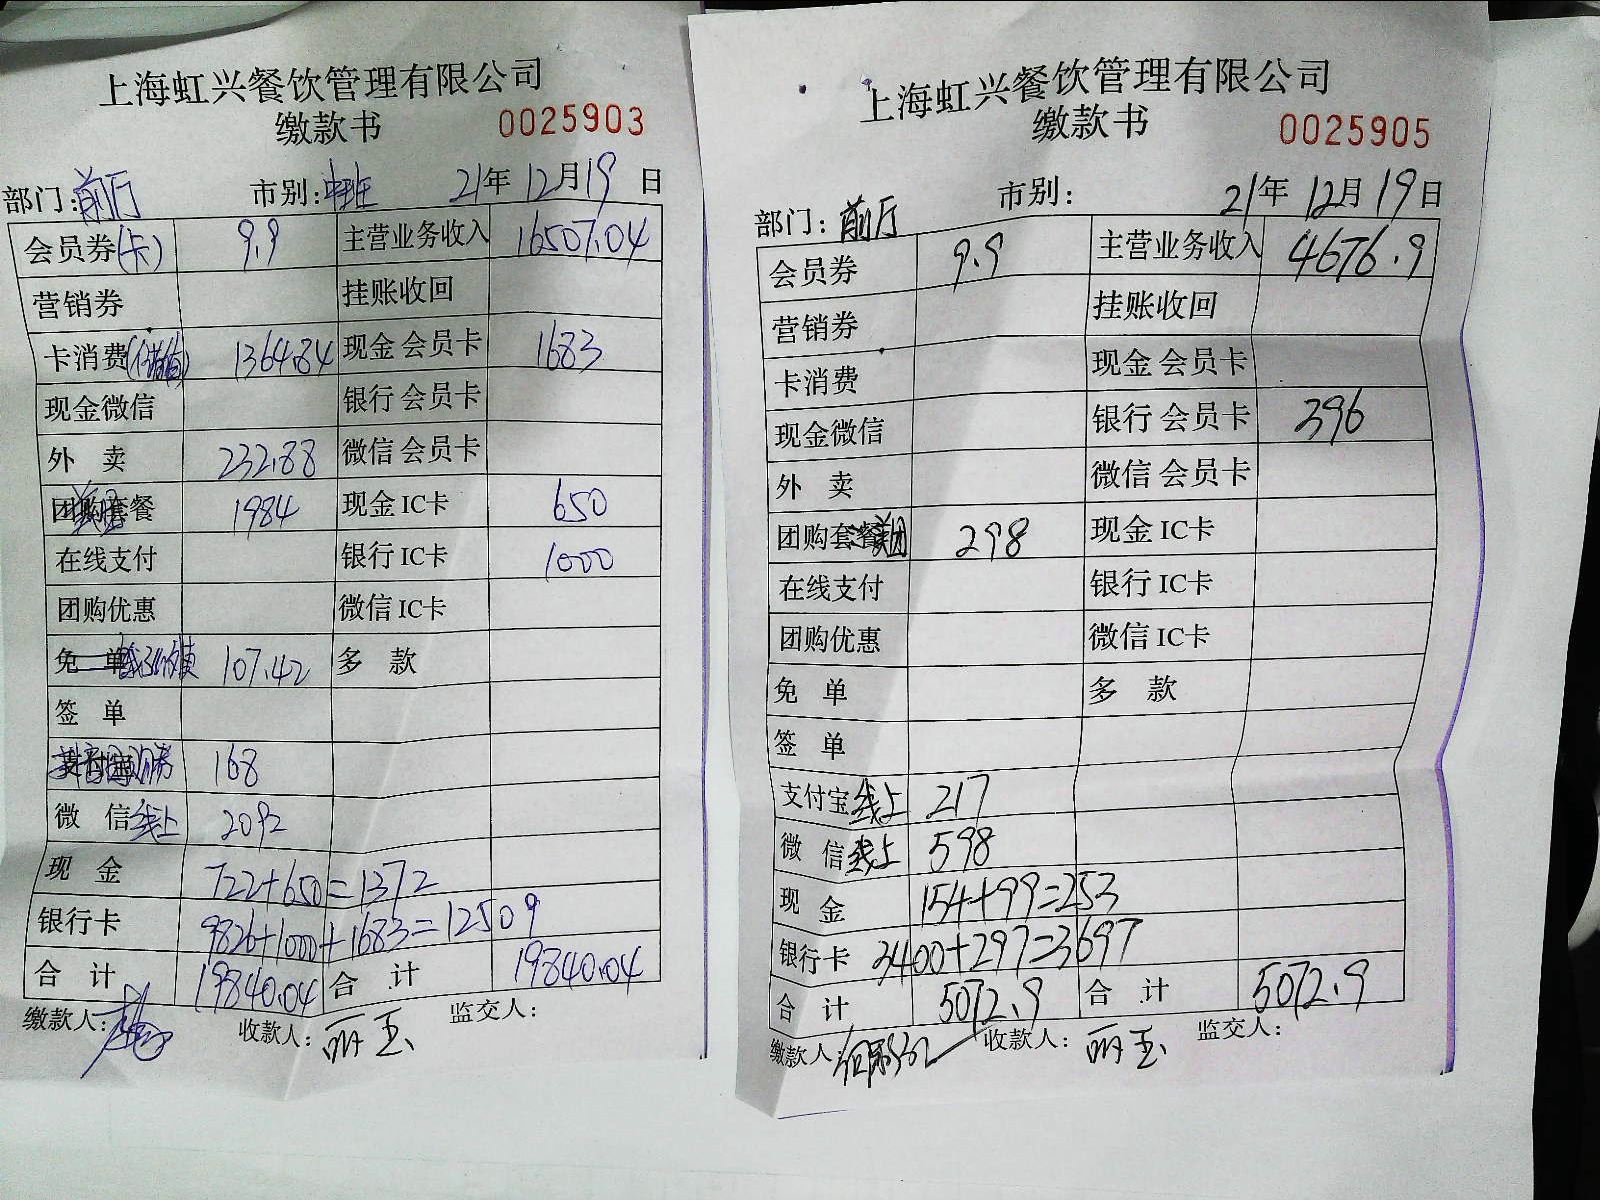 上海虹兴餐饮管理有限公司
缴款书 0025903
部门:前厅 市别:中班 21年12月19日
会员券(卡) 9.9 主营业务收入 16507.04
营销券 挂账收回
卡消费(储值) 1364.84 现金会员卡 1683
现金微信 银行会员卡
外 卖 232.88 微信会员卡
团购套餐 1984 现金IC卡 650
在线支付 银行IC卡 1000
团购优惠 微信IC卡
免 单 107.42 多 款
签 单
168
微 信线上 2092
现 金 722+650=1372
银行卡 9826+1000+1683=12509
合 计 19840.04 合 计 19840.04
缴款人: 收款人:丽玉 监交人:
上海虹兴餐饮管理有限公司
缴款书 0025905
部门:前厅 市别: 21年12月19日
会员券 9.9 主营业务收入 4676.9
营销券 挂账收回
卡消费 现金会员卡
现金微信 银行会员卡 396
外 卖 微信会员卡
团购套餐美团 298 现金IC卡
在线支付 银行IC卡
团购优惠 微信IC卡
免 单 多 款
签 单
支付宝线上 217
微 信线上 598
现 金 154+99=253
银行卡 3400+297=3697
合 计 5072.9 合 计 5072.9
缴款人: 收款人:丽玉 监交人: